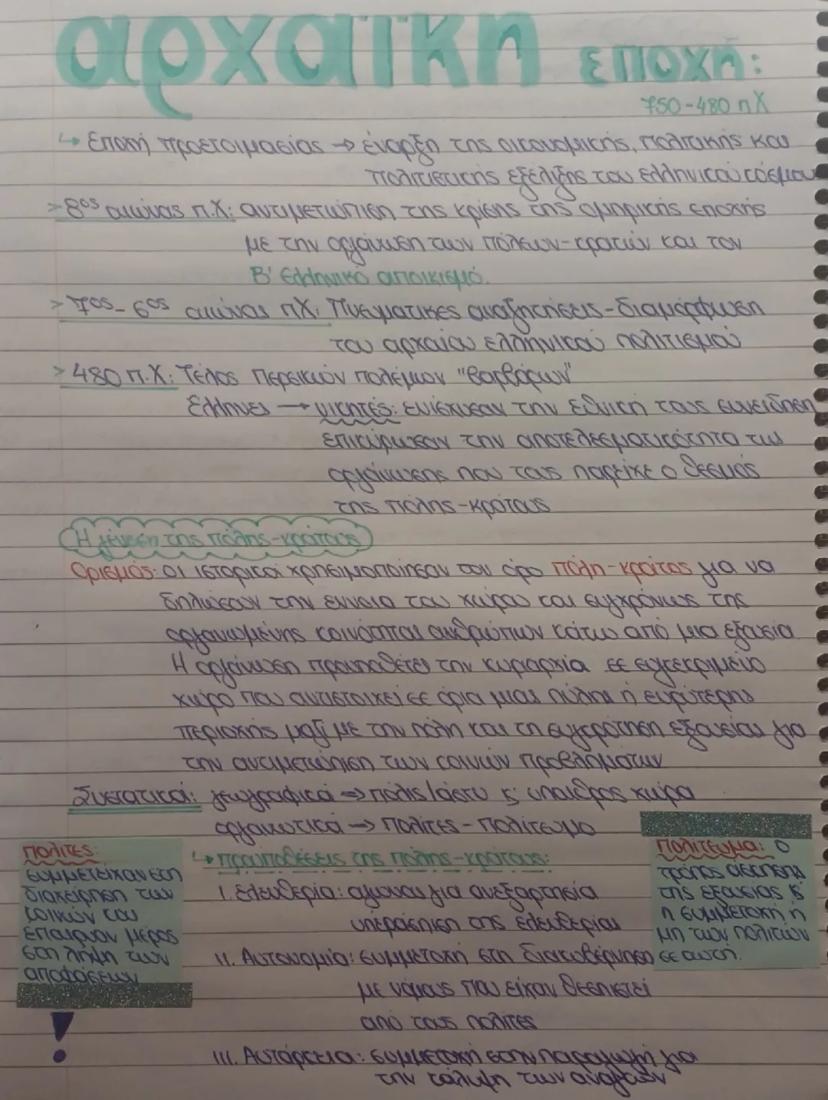 αρχαϊκή εποχή:
750-480 π.Χ
↳ Εποχή προετοιμασίας → έναρξη της οικονομικής, πολιτικής και
πολιτιστικής εξέλιξης του ελληνικού κόσμου
> 8ος αιώνας π.Χ: αντιμετώπιση της κρίσης της ομηρικής εποχής
με την οργάνωση των πόλεων-κρατών και τον
Β' ελληνικό αποικισμό.
> 7ος - 6ος αιώνας π.Χ: Πνευματικές αναζητήσεις-διαμόρφωση
του αρχαίου ελληνικού πολιτισμού
> 480 π.Χ: Τέλος Περσικών πολέμων "βαρβάρων"
Έλληνες → νικητές: ενίσχυσαν την εθνική τους συνείδηση
επικύρωσαν την αποτελεσματικότητα της
οργάνωσης που τους παρείχε ο θεσμός
της πόλης-κράτους
Η γένεση της πόλης-κράτους
Ορισμός: οι ιστορικοί χρησιμοποίησαν τον όρο πόλη-κράτος για να
δηλώσουν την έννοια του χώρου και συγχρόνως της
οργανωμένης κοινότητας ανθρώπων κάτω από μια εξουσία
Η οργάνωση προϋποθέτει την κυριαρχία σε συγκεκριμένο
χώρο που αντιστοιχεί σε όρια μιας πόλης ή ευρύτερης
περιοχής μαζί με την πόλη και τη συγκρότηση εξουσίας για
την αντιμετώπιση των κοινών προβλημάτων
Συστατικά: γεωγραφικά → πόλις/άστυ ς' ύπαιθρος χώρα
οργανωτικά → πολίτες - πολίτευμα
πολίτες:
συμμετείχαν στη
διαχείρηση των
κοινών και
έπαιρναν μέρος
στη λήψη των
αποφάσεων
!
↳ προϋποθέσεις της πόλης-κράτους:
I. ελευθερία: αγώνας για ανεξαρτησία
υπεράσπιση της ελευθερίας
II. Αυτονομία: συμμετοχή στη διακυβέρνηση
με νόμους που είχαν θεσπιστεί
από τους πολίτες
III. Αυτάρκεια: συμμετοχή στην παραγωγή για
την κάλυψη των αναγκών
πολίτευμα: ο
τρόπος άσκησης
της εξουσίας ς'
η συμμετοχή ή
μη των πολιτών
σε αυτή.